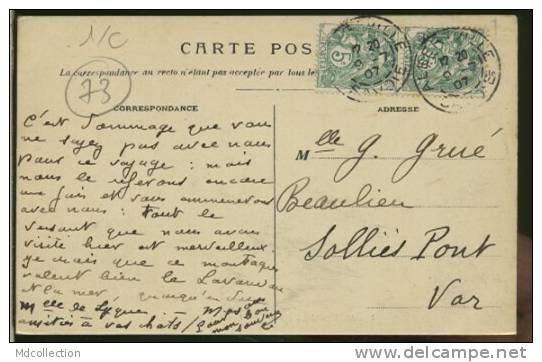 1/C
CARTE POS
La correspondance au recto n'étant pas acceptée par tous les
73
ALBERTVILLE
17 20
9 -7
07
SAVOIE
CORRESPONDANCE
ADRESSE
C'est dommage que vous
ne soyez pas avec nous
pour ce voyage : mais
nous le referons encore
une fois et vous emmenerons
avec nous : Tout le
versant que nous avons
visité hier est merveilleux
je crois que ce montagnes
valent bien le Lavandou
et la mer,
Mlle de
amitiés à vos chats/
Mlle G. Grué
Beaulieu
Solliès Pont
Var
Mdcollection
www.delcampe.net